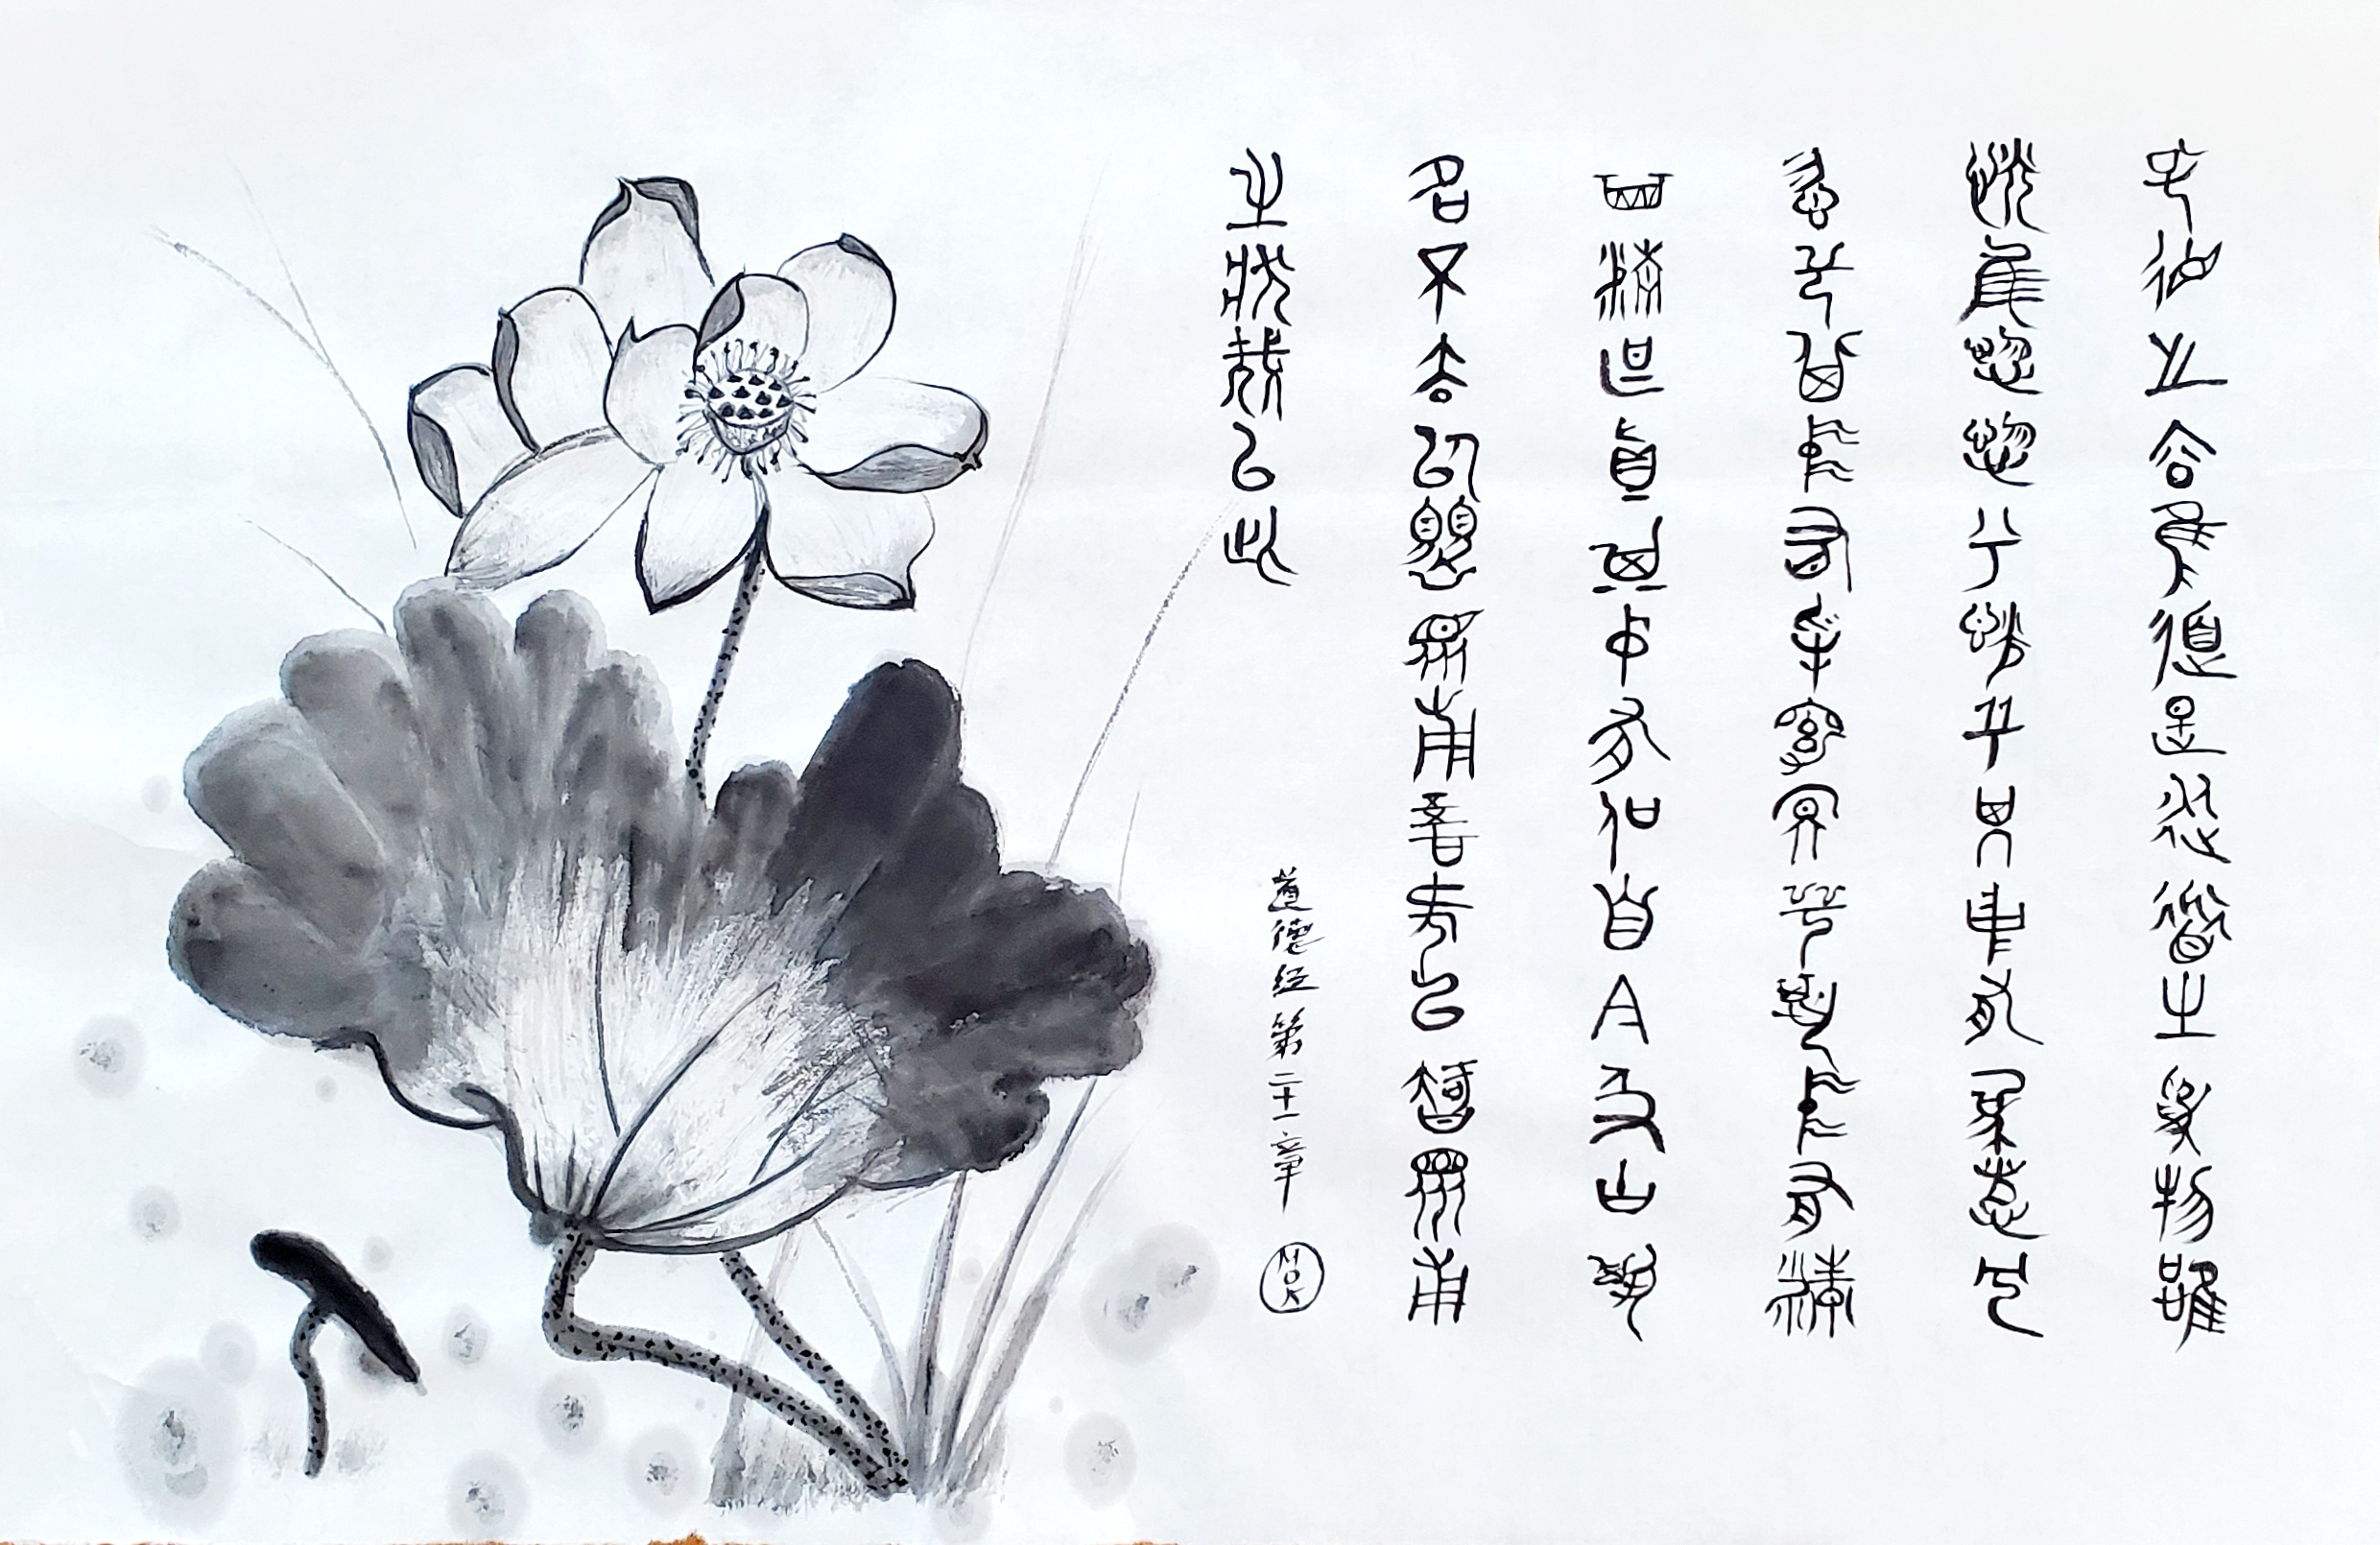 孔德之容惟道是從道之為物唯
恍惟惚惚兮恍兮其中有象恍兮
惚兮其中有物窈冥兮其中有精
其精甚真其中有信自今及古其
名不去以閱眾甫吾何以知眾甫
之狀哉以此
道德经第二十一章
MOK